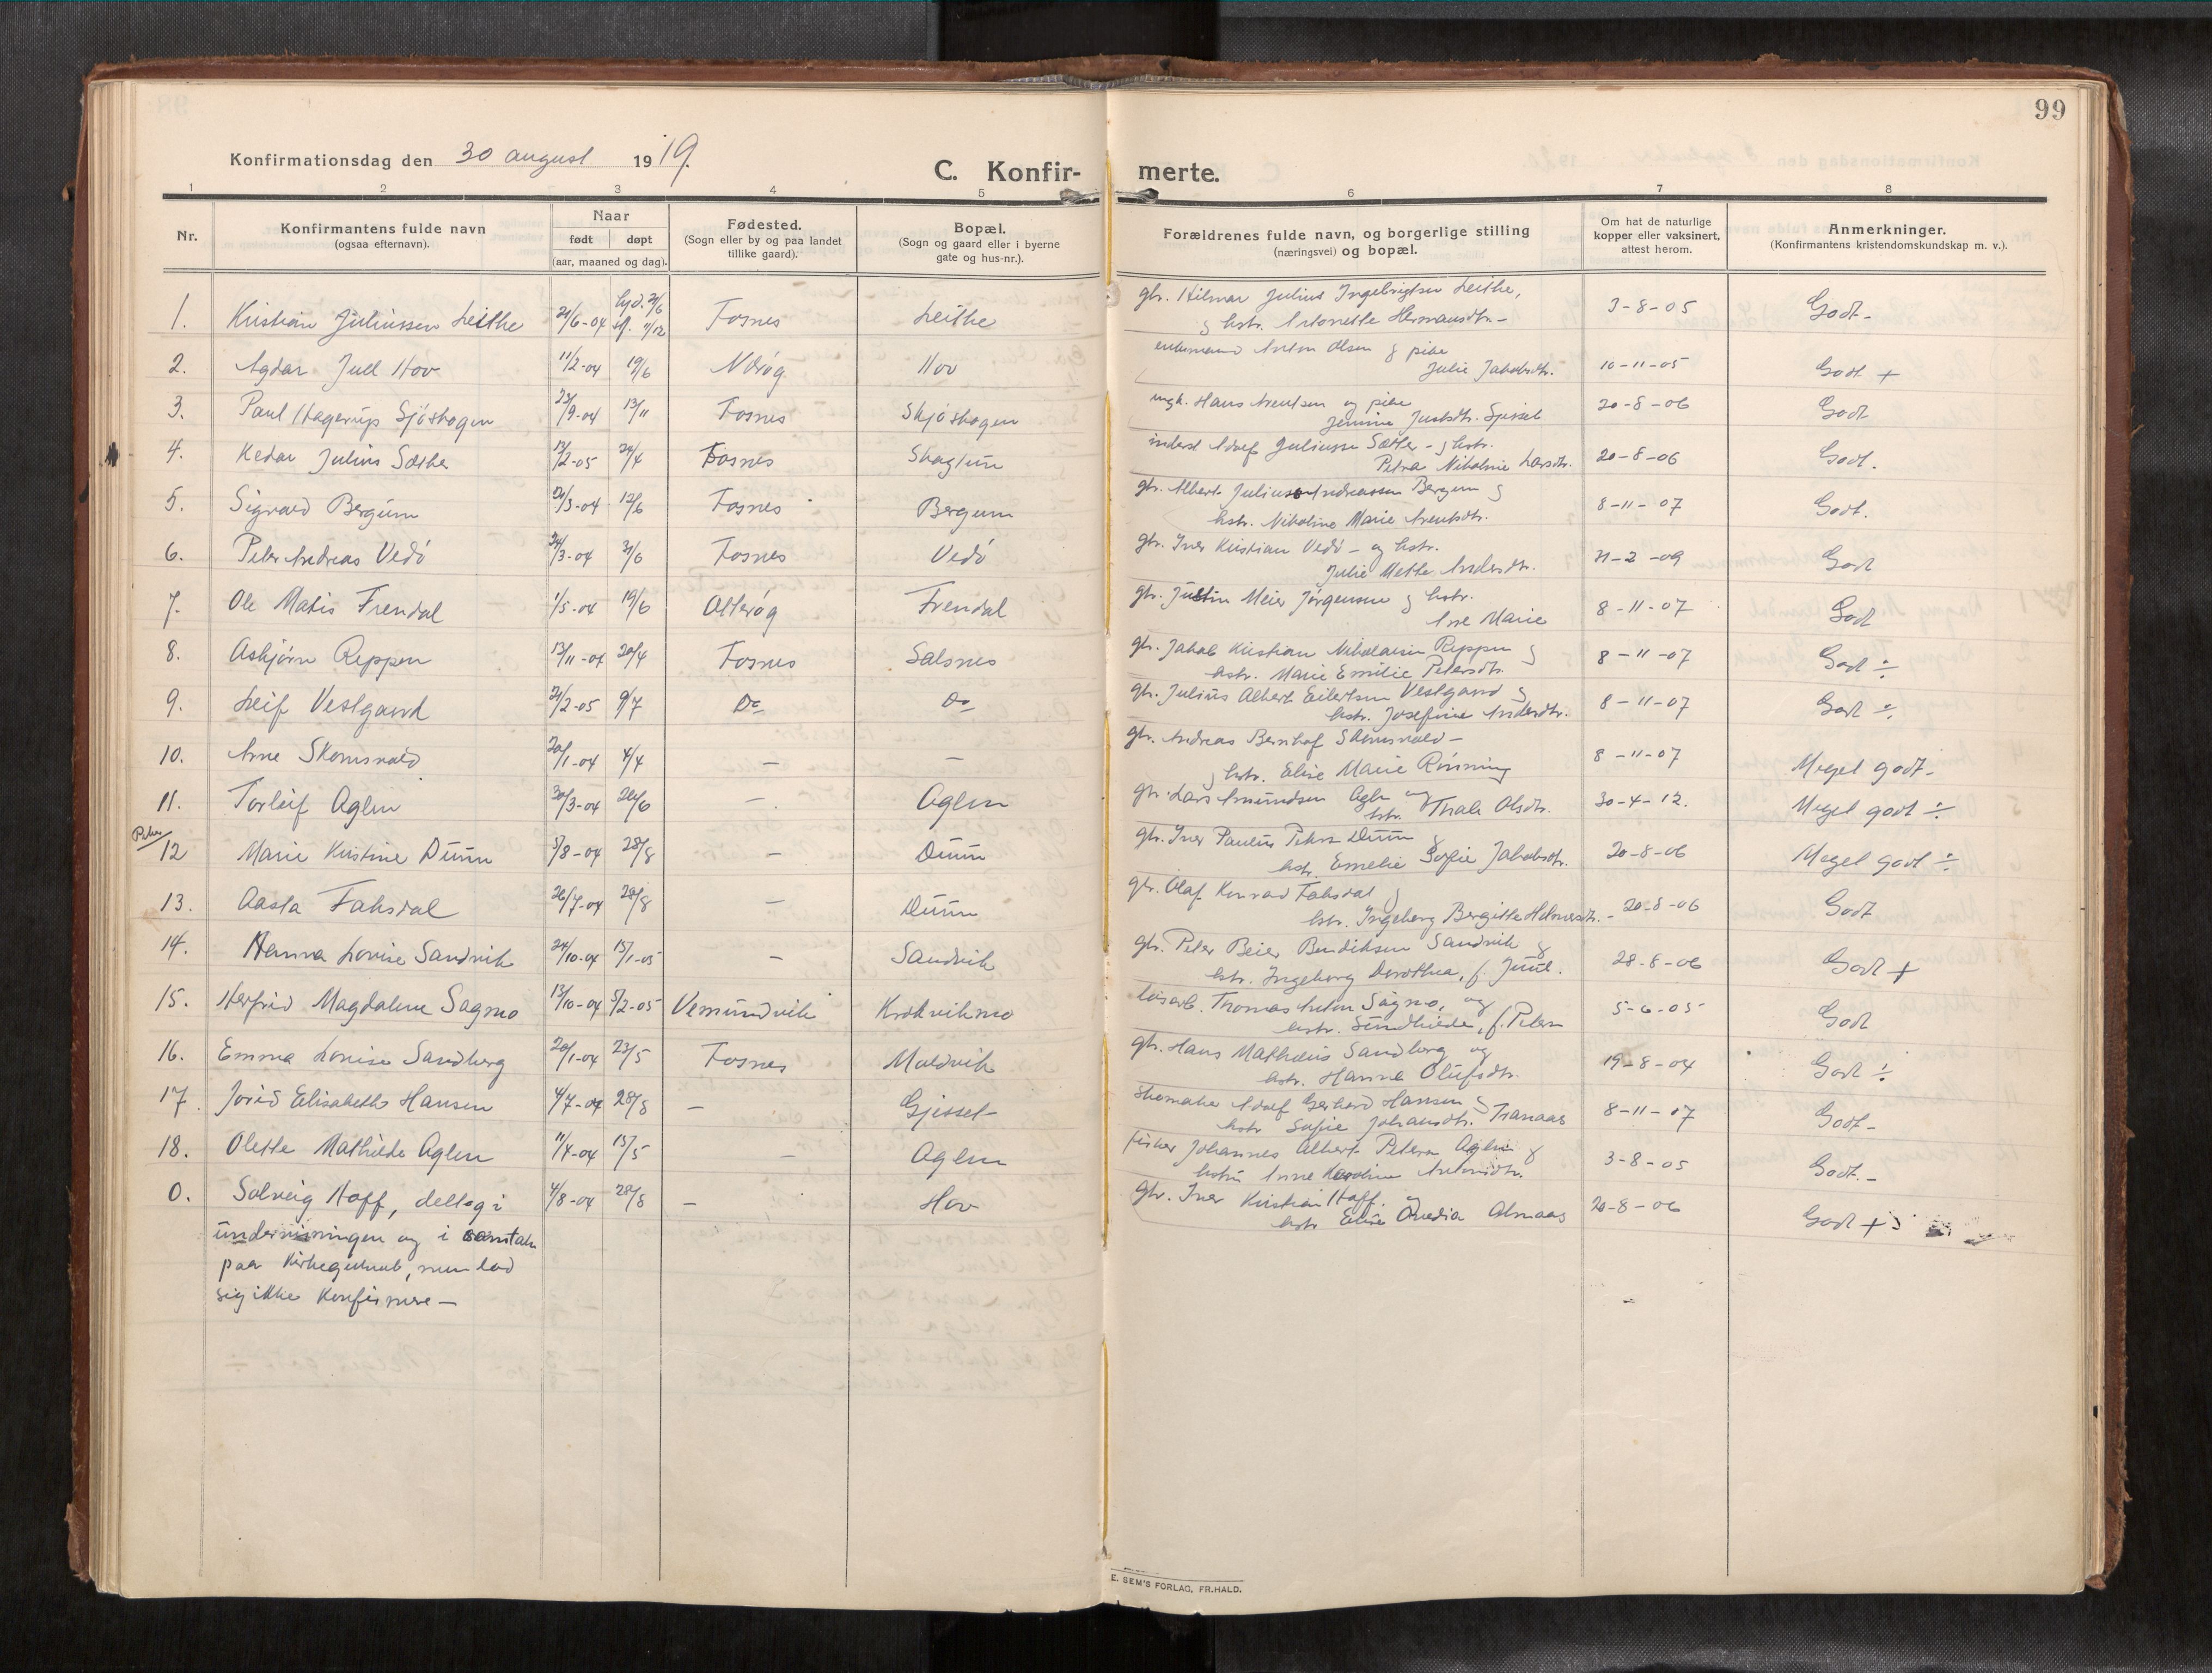 99
Konfirmationsdag den 30 august 1919.
C. Konfir- merte.
1 2 3 4 5 6 7 8
Nr.
Konfirmantens fulde navn
(ogsaa efternavn).
Naar
født døpt
(aar, maaned og dag).
Fødested.
(Sogn eller by og paa landet
tillike gaard).
Bopæl.
(Sogn og gaard eller i byerne
gate og hus-nr.).
Forældrenes fulde navn, og borgerlige stilling
(næringsvei) og bopæl.
Om hat de naturlige
kopper eller vaksinert,
attest herom.
Anmerkninger.
(Konfirmantens kristendomskundskap m. v.).
1. Kristian Juliussen Leithe 21/6-04 Fosnes Leithe gbr. Hilmar Julius Ingebrigtsen Leithe, 3-8-05 Godt-
g hstr. Antonette Hermansdtr.-
2. Agdar Juel Hov 11/2-04 19/6 Hov Anton Olsen g pike 10-11-05 Godt +
Julie Jakobsdtr.
3. Paul Hagerup Sjöskogen 23/9-04 13/11 Fosnes Skjöskogen ungk. Hans Arentsen og pike 20-8-06 Godt
4. Kedar Julius Sæther 13/2-05 24/4 Fosnes inderst Adolf Juliussen Sæther - g hstr. 20-8-06 Godt.
Petra Nikoline Larsdtr.
5. Sigvald Bergum 12/6 Fosnes Bergum gbr. Albert Julius Andreassen Bergum g 8-11-07 Godt.
hstr. Nikoline Marie Arentsdtr.
6. Peter Andreas Vedö 24/3-04 Fosnes Vedö gbr. Iver Kristian Vedö - og hstr. 21-2-09 Godt
Julie Mette Andersdtr.
7. Ole Matis Frendal 1/5-04 19/6 Otterøg Frendal gbr. Justin Meier Jørgensen g hstr. 8-11-07 Godt
Ane Marie
8. Asbjørn Reppen 13/11-04 20/4 Fosnes Salsnes gbr. Jakob Kristian Nikolaisen Reppen g 8-11-07 Godt ÷
hstr. Marie Emilie Petersdtr.
9. Leif Vestgaard 21/2-05 9/7 Do Do gbr. Julius Albert Eilertsen Vestgaard g 8-11-07 Godt ÷
hstr. Josefine Andersdtr.
10. Arne Skomsvold 20/1-04 4/4 - - gbr. Andreas Bernhof Skomsvold - 8-11-07 Meget godt-
g hstr. Elise Marie Rönning
11. Torleif Aglen 30/3-04 26/6 - Aglen gbr. Lars Amundsen Aglen og 30-4-12. Meget godt ÷
hstr. Thale Olsdtr.
12 Marie Kristine Duun 5/8-04 28/8 - Duun gbr. Iver Paulus Petersen Duun g 20-8-06 Meget godt ÷
hstr. Emelie Sofie Jakobsdtr.
13. Aasta Faksdal 26/7-04 28/8 - Duun gbr. Olaf Konrad Faksdal g 20-8-06 Godt
hstr. Ingeborg Bergitte
14. Hanna Lovise Sandvik 24/10-04 15/1-05 - Sandvik gbr. Peter Beier Bendiksen Sandvik g 28-8-06 Godt +
hstr. Ingeborg Dorothea, f. Juul.
15. Herfrid Magdalene Sagmo 13/10-04 5/2-05 Vemundvik Krokvikmo løsarb. Thomas Anton Sagmo, og 5-6-05 Godt
16. Emma Lovise Sandberg 20/1-04 23/5 Fosnes Moldvik gbr. Hans Mathæus Sandberg og 19-8-04 Godt ÷
hstr. Hanna Olufsdtr.
17. Jorid Elisabeth Hansen 4/7-04 28/8 - Gjessel skomaker Adolf Gerhard Hansen g 8-11-07 Godt-
hstr Sofie Johansdtr. Tranaas
18. Olette Mathilde Aglen 11/4-04 15/5 - Aglen fisker Johannes Albert Petersen Aglen g 3-8-05 Godt.-
hustru Anne Karoline Antonsdtr.
0. Solveig Hoff, deltog i 4/8-04 28/8 - Hov gbr. Iver Kristian Hoff. og 20-8-06 Godt +
hstr Elise Almaas
undervisningen og i samtale
paa kirkegulvet, men lod
sig ikke konfirmere -
E. SEM'S FORLAG, FR.HALD.